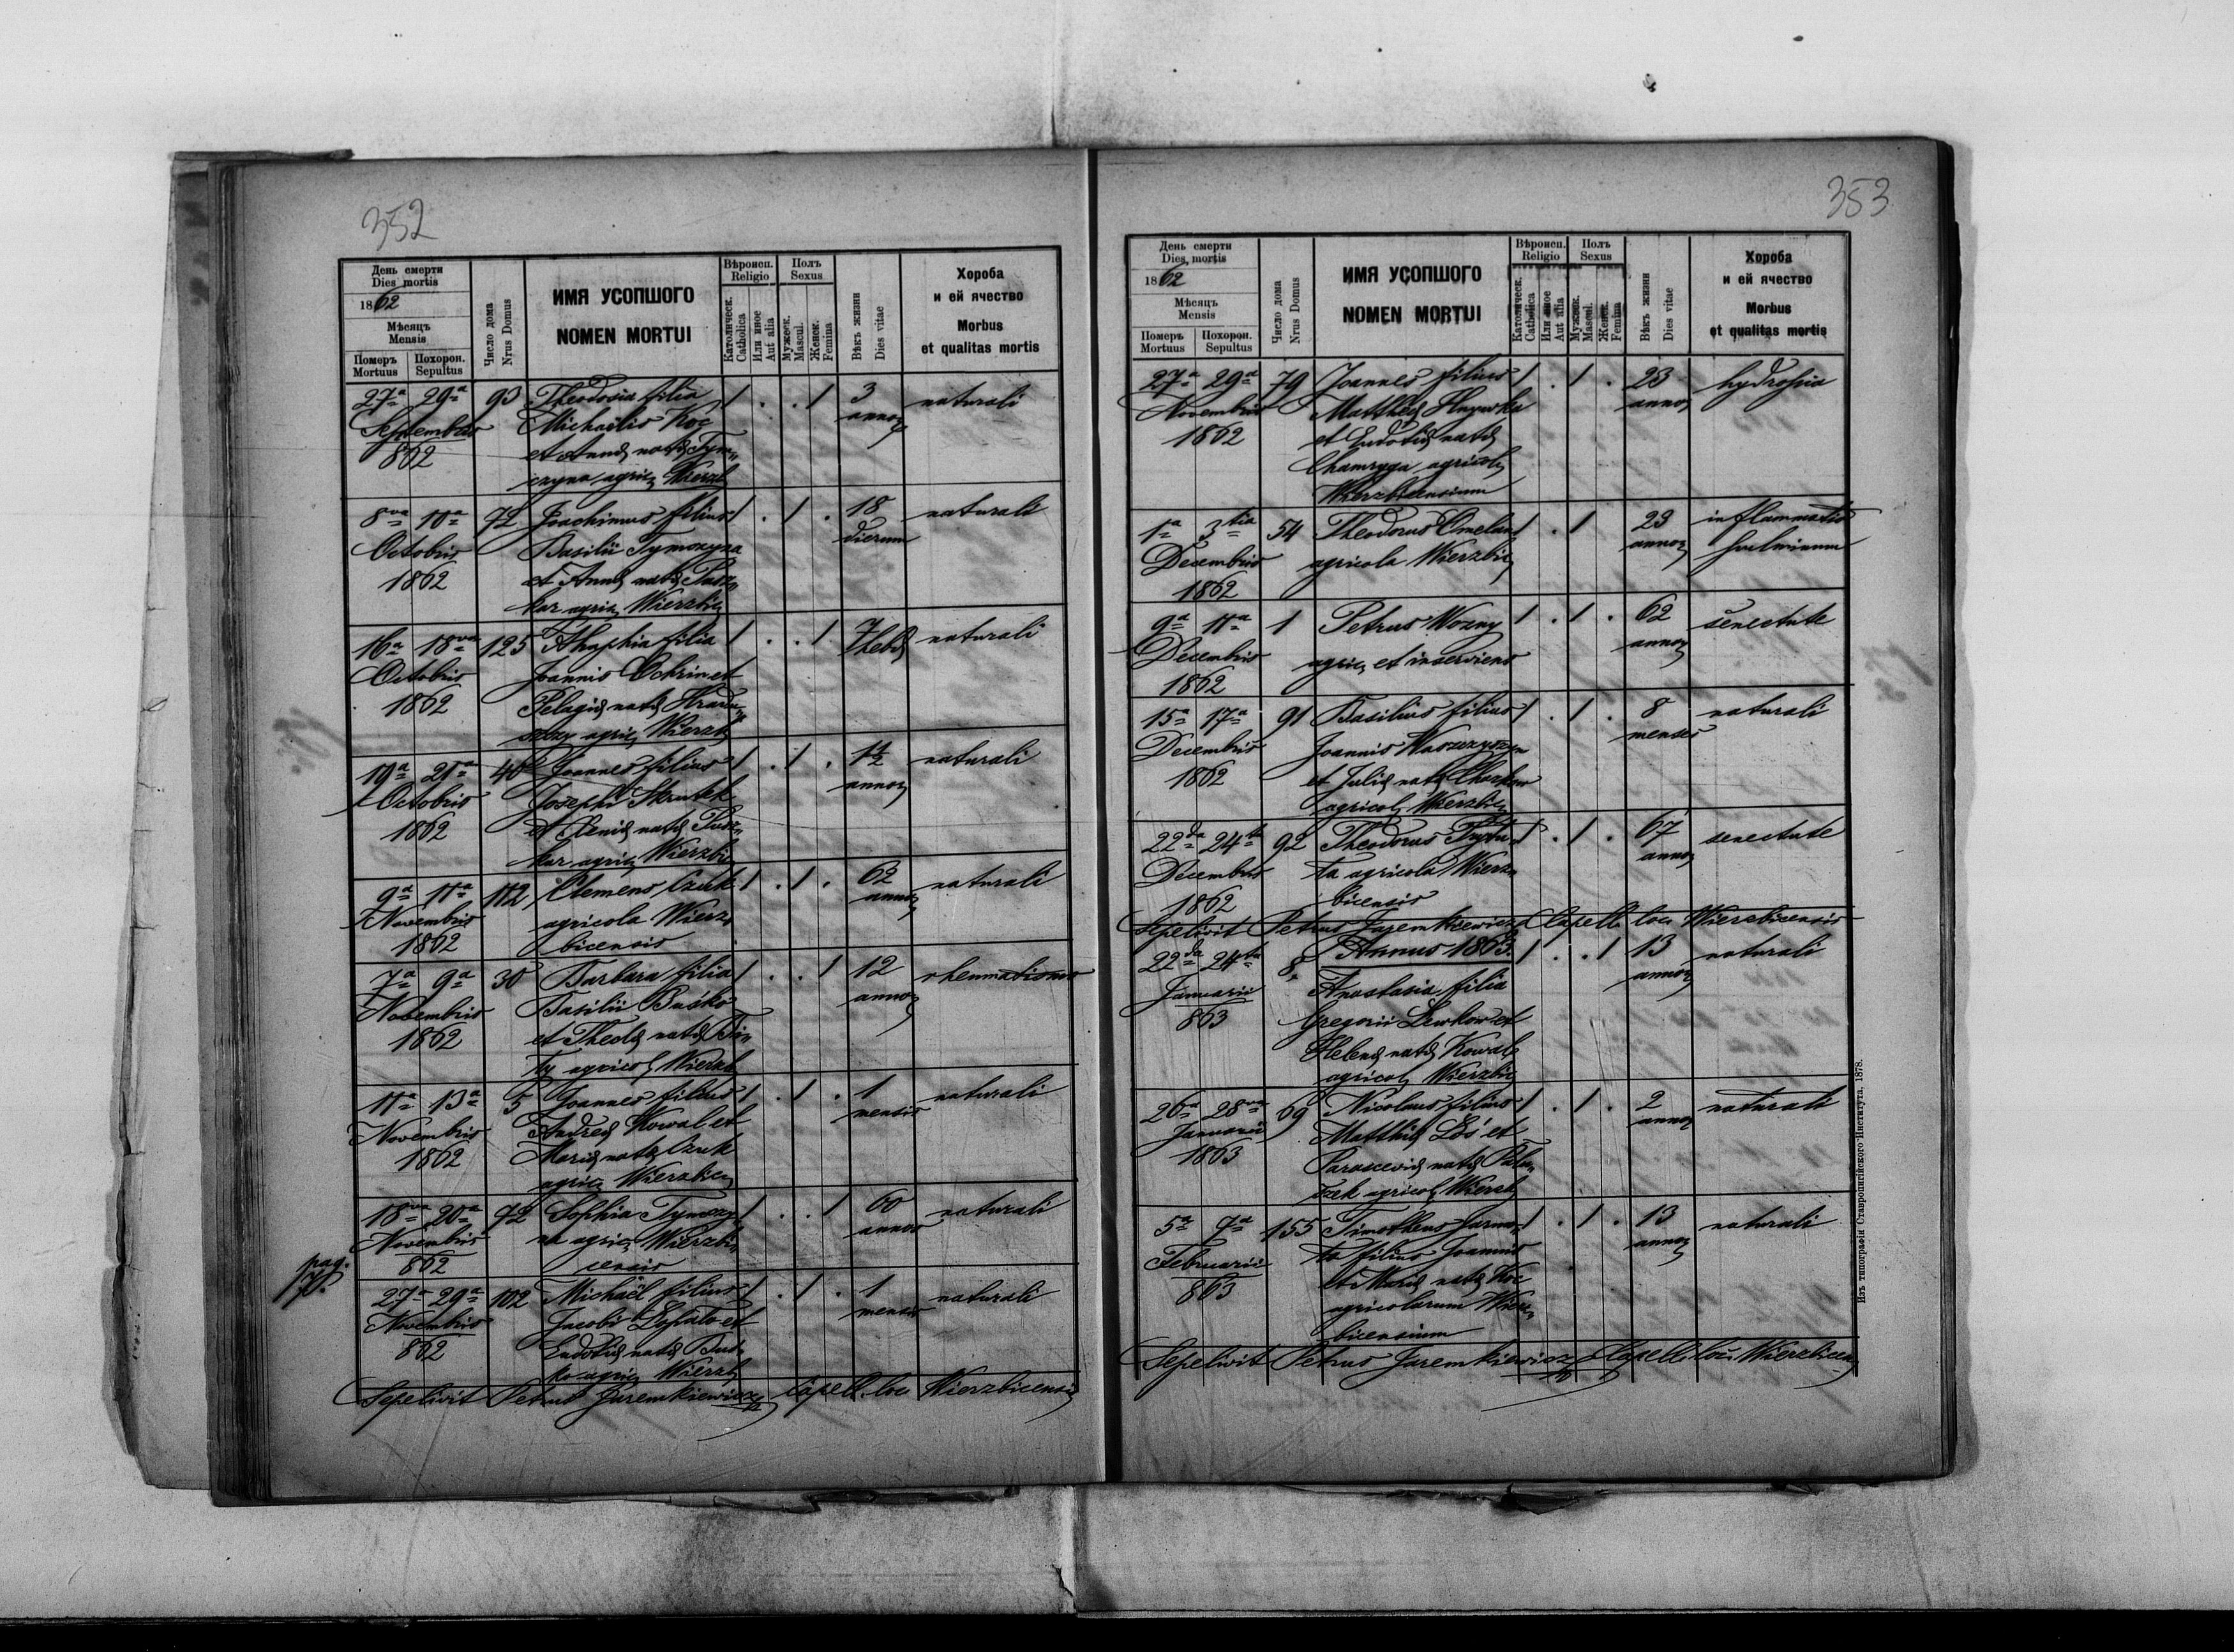 352
День смерти
Dies mortis
1862
Мѣсяцъ
Mensis
Померъ Похорон.
Mortuus Sepultus
Число дома
Nrus Domus
ИМЯ УСОПШОГО
NOMEN MORTUI
Вѣроисп.
Religio
Католическ.
Catholica
Или иное
Aut alia
Полъ
Sexus
Мужеск.
Mascul.
Женск.
Femina
Вѣкъ жизни
Dies vitae
Хороба
и ей ячество
Morbus
et qualitas mortis
27a 29a 93 Theodosia filia 1 . . 1 3 naturali
Septembris Michaëlis Koc annor
862 et Annae natae Tym
czyna agric Wierzb
8va 10a 72 Joachimus filius 1 . 1 . 18 naturali
Octobris Basilii Tymczyna dierum
1862 et Annae natae Pusz
kar agric Wierzbic
16a 18va 125 filia 1 . . 1 7 naturali
Octobris Joannis Ochrim et hebd
1862 Pelagiae natae
agric Wierzb
19a 21a 40 Joannes filius 1 . 1 . 1½ naturali
Octobris Josephi Skrutek annor
1862 et Xeniae natae Pusz
kar agric Wierzbic
9a 11a 112 Clemens Czuk 1 . 1 . 62 naturali
Novembris agricola Wierz annor
1862 bicensis
7a 9a 30 Barbara filia 1 . . 1 12 rheumatismus
Novembris Basilii Buśko annor
1862 et Theclae natae
agricol Wierzb
11a 13a 5 Joannes filius 1 . 1 . 1 naturali
Novembris Andreae Kowal et mensis
1862 Mariae natae Czuk
agric Wierzbic
18va 20a 72 Sophia Tymczy 1 . . 1 60 naturali
Novembris na agric Wierzbi annor
862 censis
pag.
27a 29a 102 Michaël filius 1 . 1 . 1 naturali
Novembris Jacobi et mensis
862 Eudoxiae natae Bus
ko agric Wierzb
Sepelivit Petrus Juremkiewicz Capell. loci Wierzbicensis
353
День смерти
Dies mortis
1862
Мѣсяцъ
Mensis
Померъ Похорон.
Mortuus Sepultus
Число дома
Nrus Domus
ИМЯ УСОПШОГО
NOMEN MORTUI
Вѣроисп.
Religio
Католическ.
Catholica
Или иное
Aut alia
Полъ
Sexus
Мужеск.
Mascul.
Женск.
Femina
Вѣкъ жизни
Dies vitae
Хороба
и ей ячество
Morbus
et qualitas mortis
27a 29a 79 Joannes filius 1 . 1 . 23 hydropia
Novembris Matthaei Hnywka annor
1862 et Eudoxiae natae
Chamryga agricol
Wierzbicensium
1a 3tia 54 Theodorus Omelan 1 . 1 23 inflammatio
Decembris agricola Wierzbic annor pulmonum
1862
9a 11a 1 Petrus Wozny 1 . 1 . 62 senectute
Decembris agric et inserviens annor
1862
15a 17a 91 Basilius filius 1 . 1 . 8 naturali
Decembris Joannis Waszczyszyn menses
1862 et Juliae natae Charkow
agricol Wierzbic
22da 24ta 92 Theodorus 1 . 1 . 67 senectute
Decembris ta agricola Wierz annor
1862 bicensis
Sepelivit Petrus Juremkiewicz Capell. loci Wierzbicensis
Annus 1863.
22da 24ta 8 1 . . 1 13 naturali
Januarii Anastasia filia annor
863 Gregorii Lewkow et
Helenae natae Kowal
agricol Wierzbic
26a 28va 69 Nicolaus filius 1 . 1 . 2 naturali
Januarii Matthiae Łoś et annor
1863 Parasceviae natae
agricol Wierzb
5a 7a 155 Timotheus Jarmo 1 . 1 . 13 naturali
Februarii ta filius Joannis annor
863 et Mariae natae Koc
agricolarum Wierz
bicensium
Sepelivit Petrus Juremkiewicz Capell. loci Wierzbicen
Изъ типографіи Ставропигійского Института, 1878.